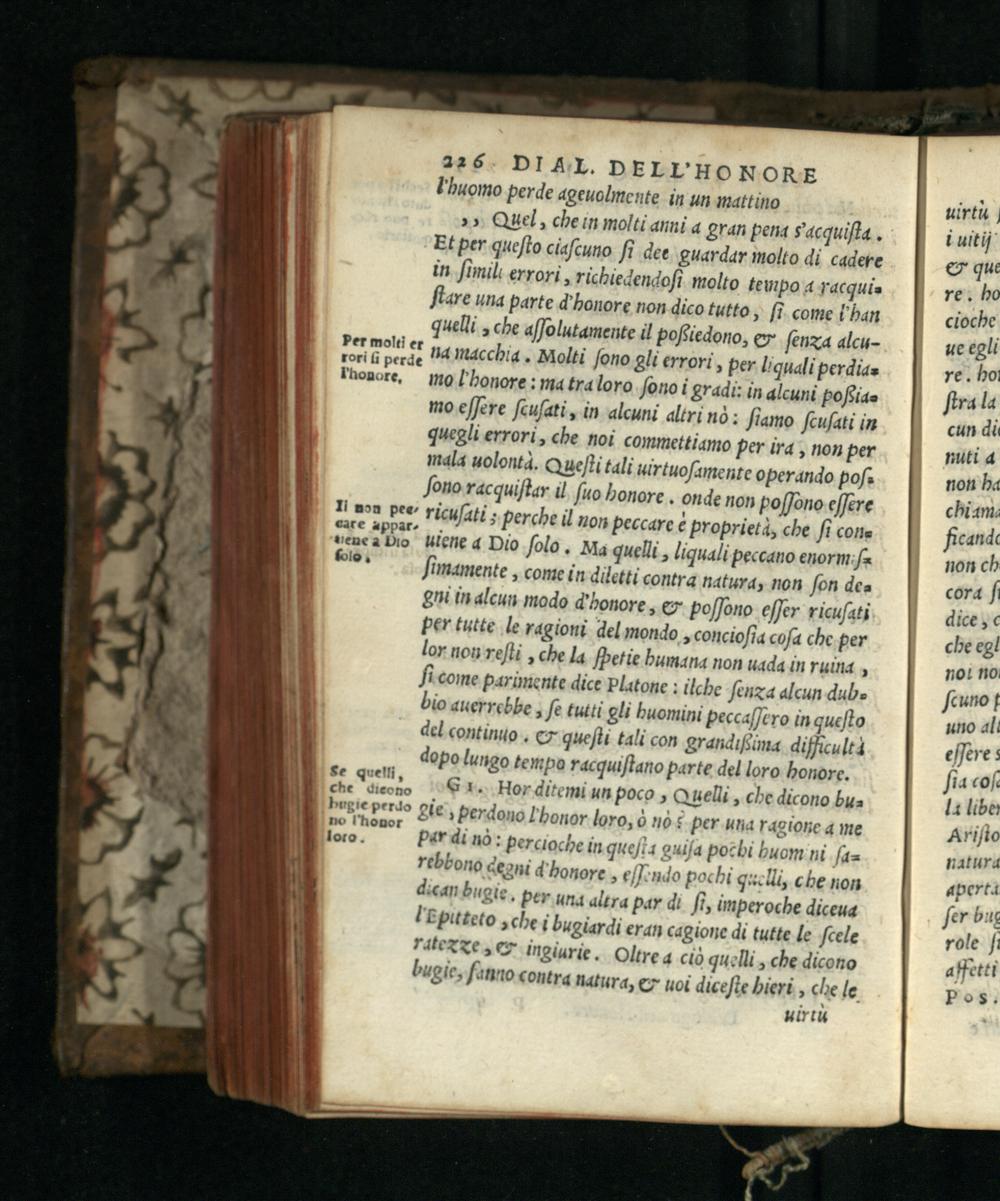 226 DIAL. DELL'HONORE
l'huomo perde ageuolmente in un mattino
,, Quel, che in molti anni a gran pena s'acquiſta.
Et per queſto ciaſcuno ſi dee guardar molto di cadere
in ſimili errori, richiedendoſi molto tempo a racqui-
ſtare una parte d'honore non dico tutto, ſi come l'han
quelli, che aſſolutamente il poßiedono, & ſenza alcu-
na macchia. Molti ſono gli errori, per liquali perdia-
mo l'honore: ma tra loro ſono i gradi: in alcuni poßia-
mo eſſere ſcuſati, in alcuni altri nò: ſiamo ſcuſati in
quegli errori, che noi commettiamo per ira, non per
mala uolontà. Queſti tali uirtuoſamente operando poſ-
ſono racquiſtar il ſuo honore. onde non poſſono eſſere
ricuſati; perche il non peccare è proprietà, che ſi con-
uiene a Dio ſolo. Ma quelli, liquali peccano enormiſ-
ſimamente, come in diletti contra natura, non ſon de-
gni in alcun modo d'honore, & poſſono eſſer ricuſati
per tutte le ragioni del mondo, concioſia coſa che per
lor non reſti, che la ſpetie humana non uada in ruina,
ſi come parimente dice Platone: ilche ſenza alcun dub-
bio auerrebbe, ſe tutti gli huomini peccaſſero in queſto
del continuo. & queſti tali con grandißima difficultà
dopo lungo tempo racquiſtano parte del loro honore.
GI. Hor ditemi un poco, Quelli, che dicono bu-
gie, perdono l'honor loro, ò nò? per una ragione a me
par di nò: percioche in queſta guiſa pochi huomini ſa-
rebbono degni d'honore, eſſendo pochi quelli, che non
dican bugie. per una altra par di ſì, imperoche diceua
l'Epitteto, che i bugiardi eran cagione di tutte le ſcele
ratezze, & ingiurie. Oltre a ciò quelli, che dicono
bugie, fanno contra natura, & uoi diceſte hieri, che le
uirtù
Per molti er
rori ſi perde
l'honore.
Il non pec-
care appar-
tiene a Dio
ſolo.
Se quelli,
che dicono
bugie perdo
no l'honor
loro.
uirtù
i uitij
& que
re. ho
cioche
ue egli
re. hon
ſtra la
cun dic
nuti a
non ha
chiama
ficando
non ch
cora ſi
dice, c
che egl
noi non
ſcuno p
uno alt
eſſere s
ſia coſa
la liber
Ariſto
natura
aperta
ſer bug
role ſi
affetti
Pos.